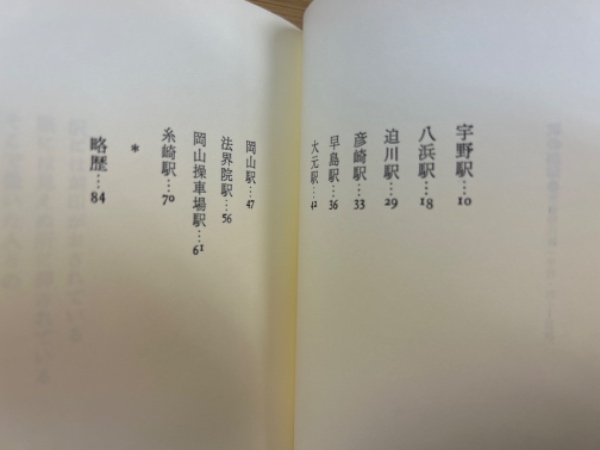 宇野駅…10
八浜駅…18
迫川駅…29
彦崎駅…33
早島駅…36
大元駅…42
岡山駅…47
法界院駅…56
岡山操車場駅…61
糸崎駅…70
*
略歴…84